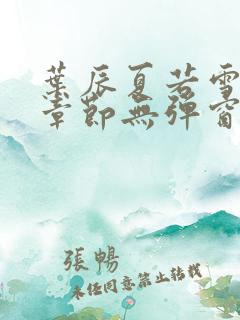 葉辰夏若雪
章節無彈窗
張暢
未經同意禁止轉載